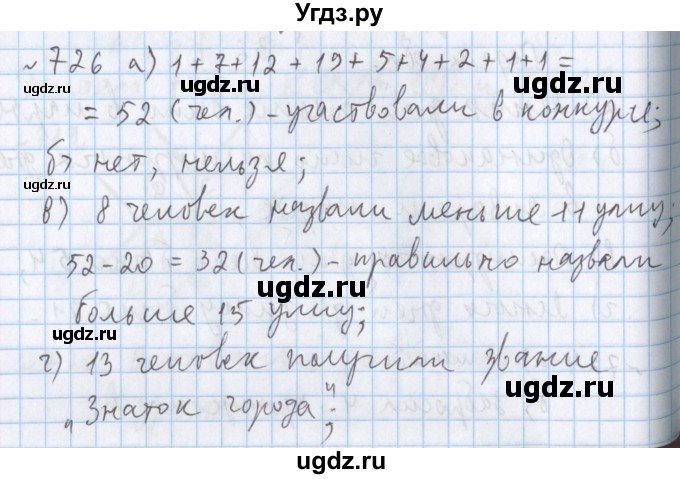 Угдз.ру
№726 а) 1+7+12+19+5+4+2+1+1=
= 52 (чел.) - участвовали в конкурсе;
б) нет, нельзя;
в) 8 человек назвали меньше 11 улиц;
52-20=32(чел.)- правильно назвали
больше 15 улиц;
г) 13 человек получили звание
„Знаток города";
ugdz.ru
ugdz.ru
ugdz.ru
ugdz.ru
ugdz.ru
ugdz.ru
ugdz.ru
ugdz.ru
ugdz.ru
ugdz.ru
ugdz.ru